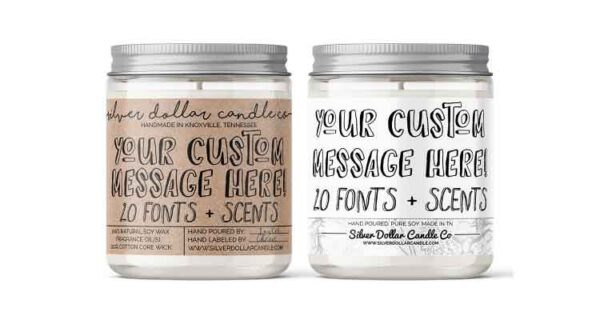 silver dollar candle co
HANDMADE IN KNOXVILLE, TENNESSEE
YOUR CUSTOM
MESSAGE HERE!
20 FONTS + SCENTS
NATURAL SOY WAX
FRAGRANCE OIL(S)
COTTON CORE WICK
HAND POURED BY:
HAND LABELED BY:
WWW.SILVERDOLLARCANDLE.COM
YOUR CUSTOM
MESSAGE HERE!
20 FONTS + SCENTS
HAND POURED. PURE SOY. MADE IN TN
Silver Dollar Candle Co
WWW.SILVERDOLLARCANDLE.COM